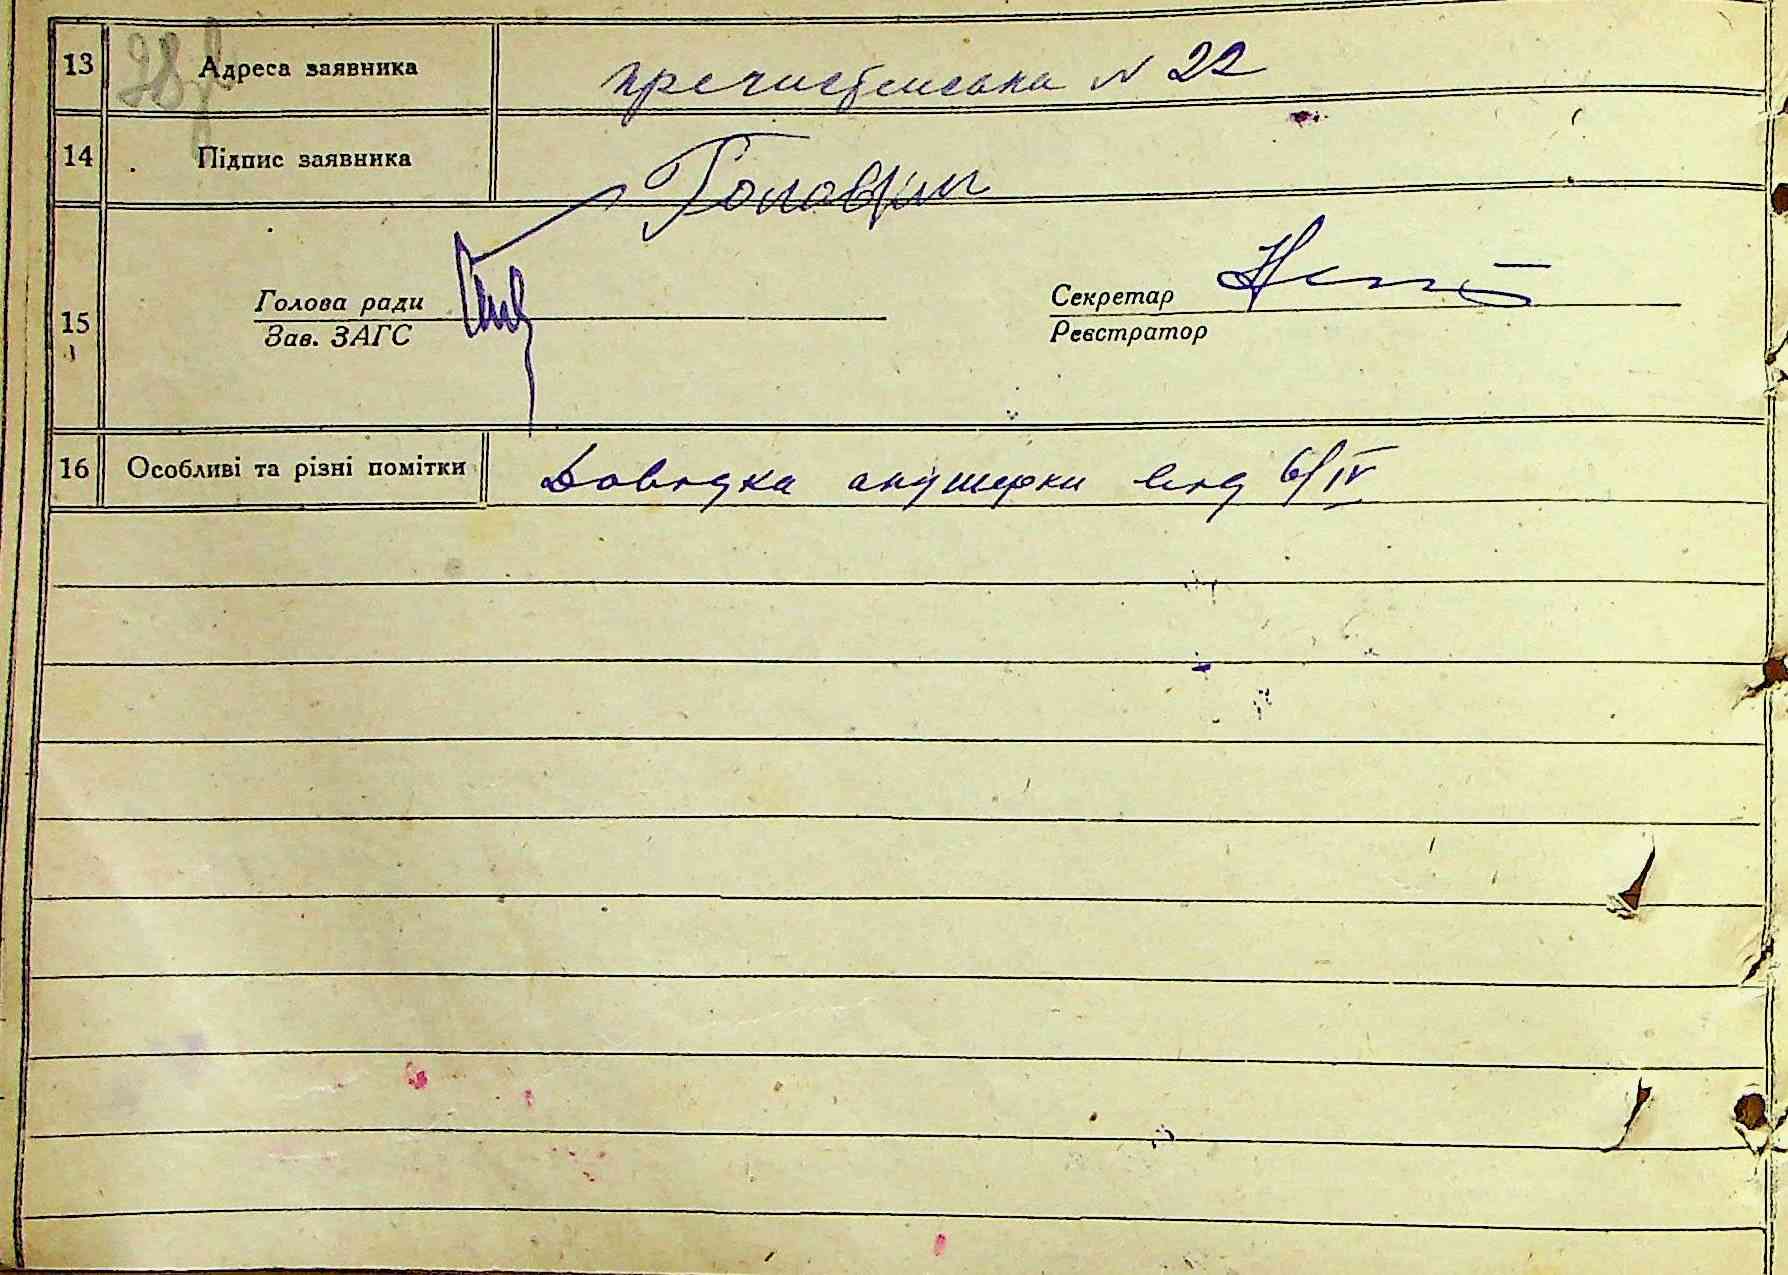 13 Адреса заявника Пречистенська N 22
14 Підпис заявника
15 Голова ради Секретар
Зав. ЗАГС Реєстратор
16 Особливі та різні помітки Довидка акушерки вид 6/IV